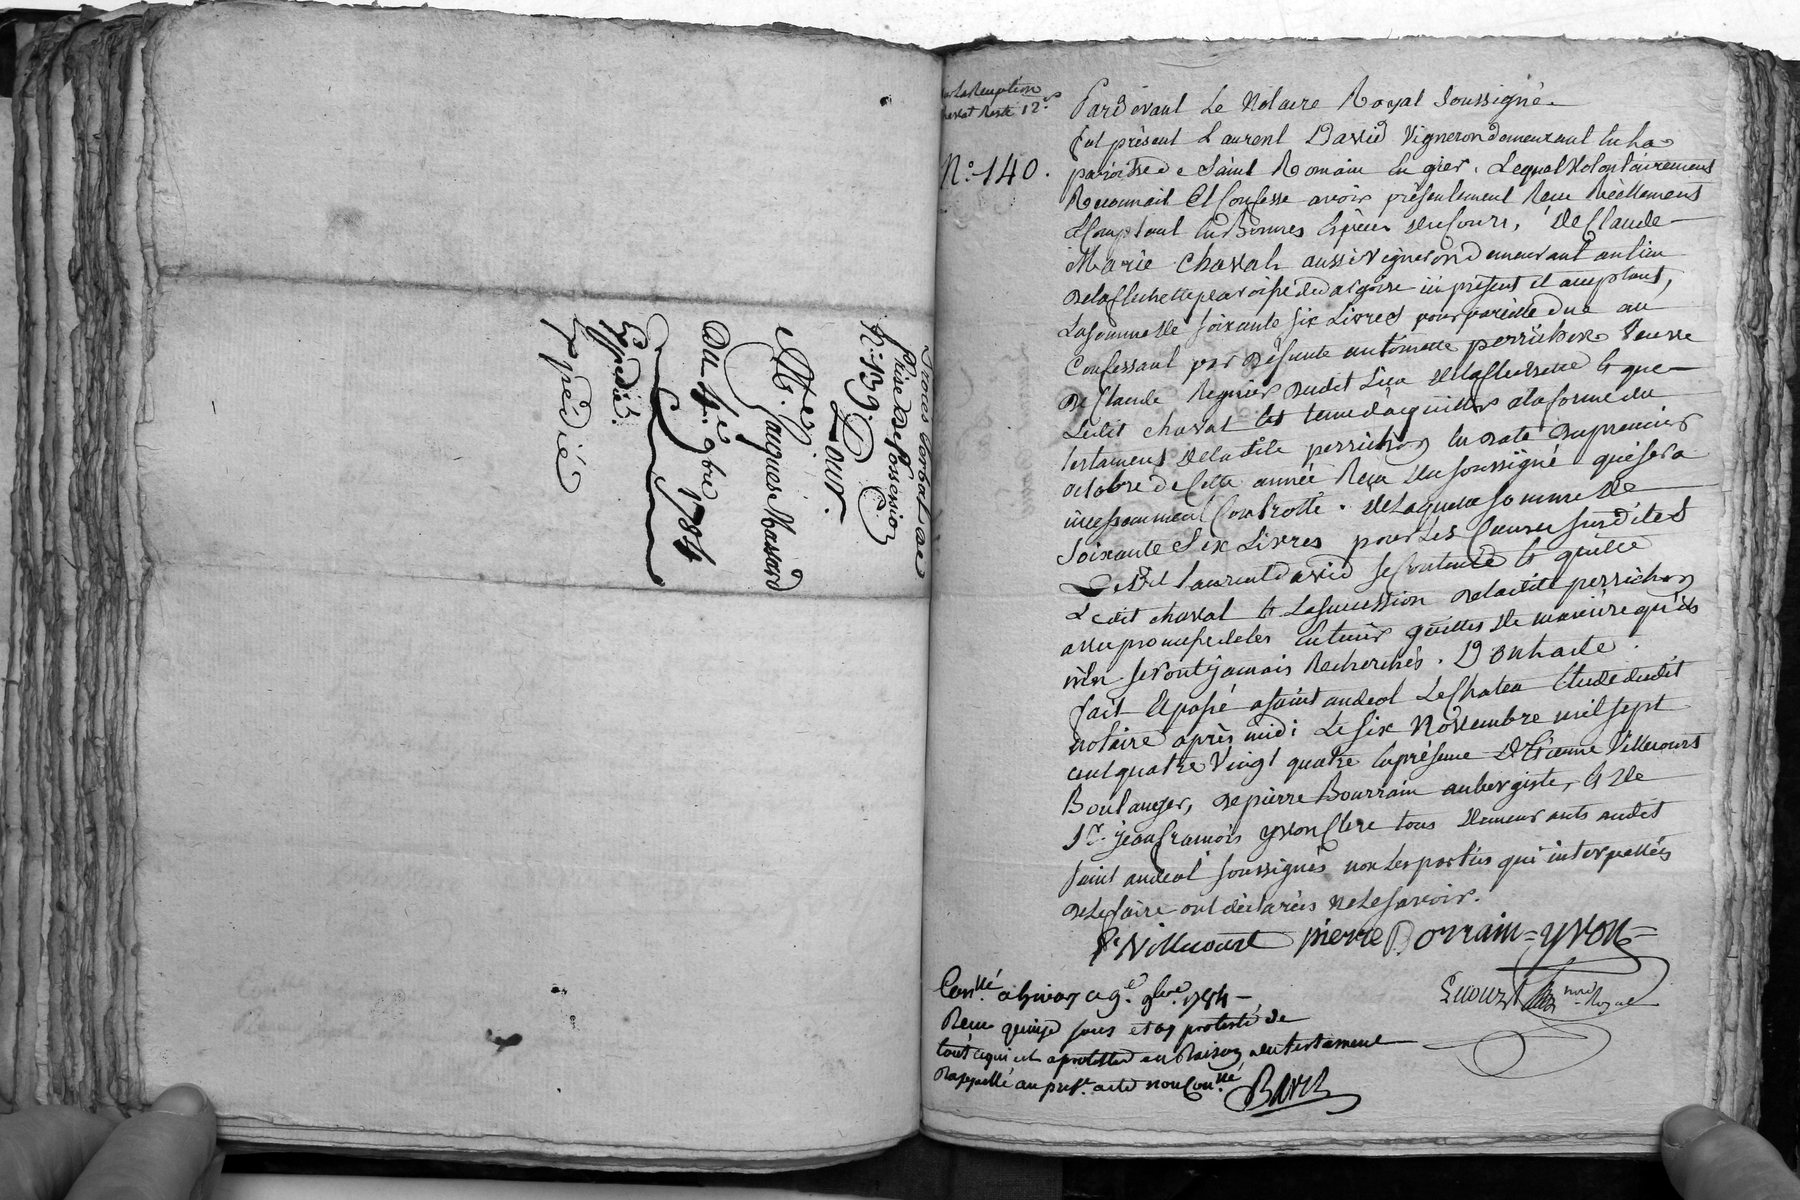 Procés verbal de
Prise de possession
N.º 139. Pour
Me. Jacques Massard
Du 4.e 9bre 1784
Expedié.
Expédié
N.º 140.
Pardevant Le Notaire Royal Soussigné
fut présent Laurent David Vigneron demeurant en La
paroisse de Saint Romain en gier. Lequel Volontairement
Reconnait Et Confesse avoir présentement Reçu Réellement
Comptant en Bonnes Espèces du Cours, de Claude
Marie Chavat aussi vigneron demeurant au lieu
de la flechette paroisse de dargoire ici présent et acceptant,
La somme de soixante six Livres pour pareille due au
Confessant par défunte antoinette perrichon Veuve
de Claude Regnier dudit Lieu de la flechette Et que
Ledit Chavat Est tenu d'acquitter a la forme du
testament de la dite perrichon en date du premier
octobre de cette année Reçu du soussigné qui sera
incessamment Controllé. de Laquelle somme de
Soixante Six Livres pour Les Causes susdites
Ledit Laurent David se Contente Et quitte
Ledit Chavat Et La succession de la dite perrichon
avec promesse de les En tenir quittes de manière qu'ils
n'en seront jamais Recherchés. Dont acte.
fait Et passé a saint andeol Le Chateau Etude dudit
notaire après midi Le six Novembre mil sept
cent quatre Vingt quatre En présence d'Etienne Villecourt
Boulanger, de pierre Bourrain aubergiste, Et de
Sr. jean francois yvon Clerc tous demeurants audit
saint andeol soussignés non Les parties qui interpellées
de Le faire ont déclarées ne Le savoir.
E Villecourt pierre Borrain = yvon =
nore Royal
Conllé. a givors ce 9.e 9bre. 1784
Reçu quinze sous et ay protesté de
tout ce qui est a protester en Raison du testament
Rappellé au pnt. acte non Conllé.